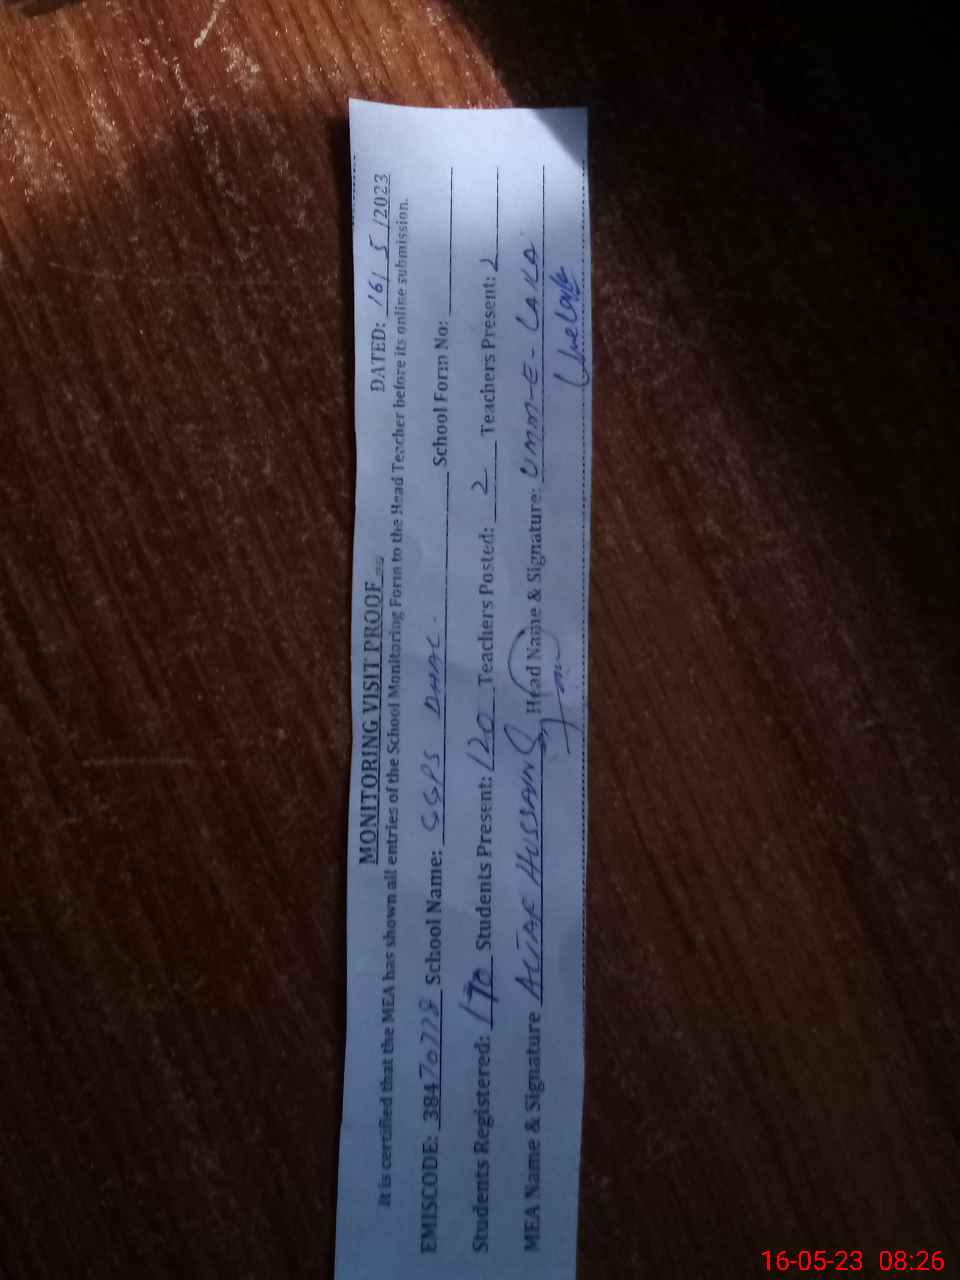 MONITORING VISIT PROOF
DATED: 16/ 5 /2023
It is certified that the MEA has shown all entries of the School Monitoring Form to the Head Teacher before its online submission.
EMISCODE: 38470778 School Name: GGPS DHAC. School Form No:
Students Registered: 170 Students Present: 120 Teachers Posted: 2 Teachers Present: 2
MEA Name & Signature ALTAF HUSSAIN Head Name & Signature: UMM-E-LAILA
16-05-23 08:26